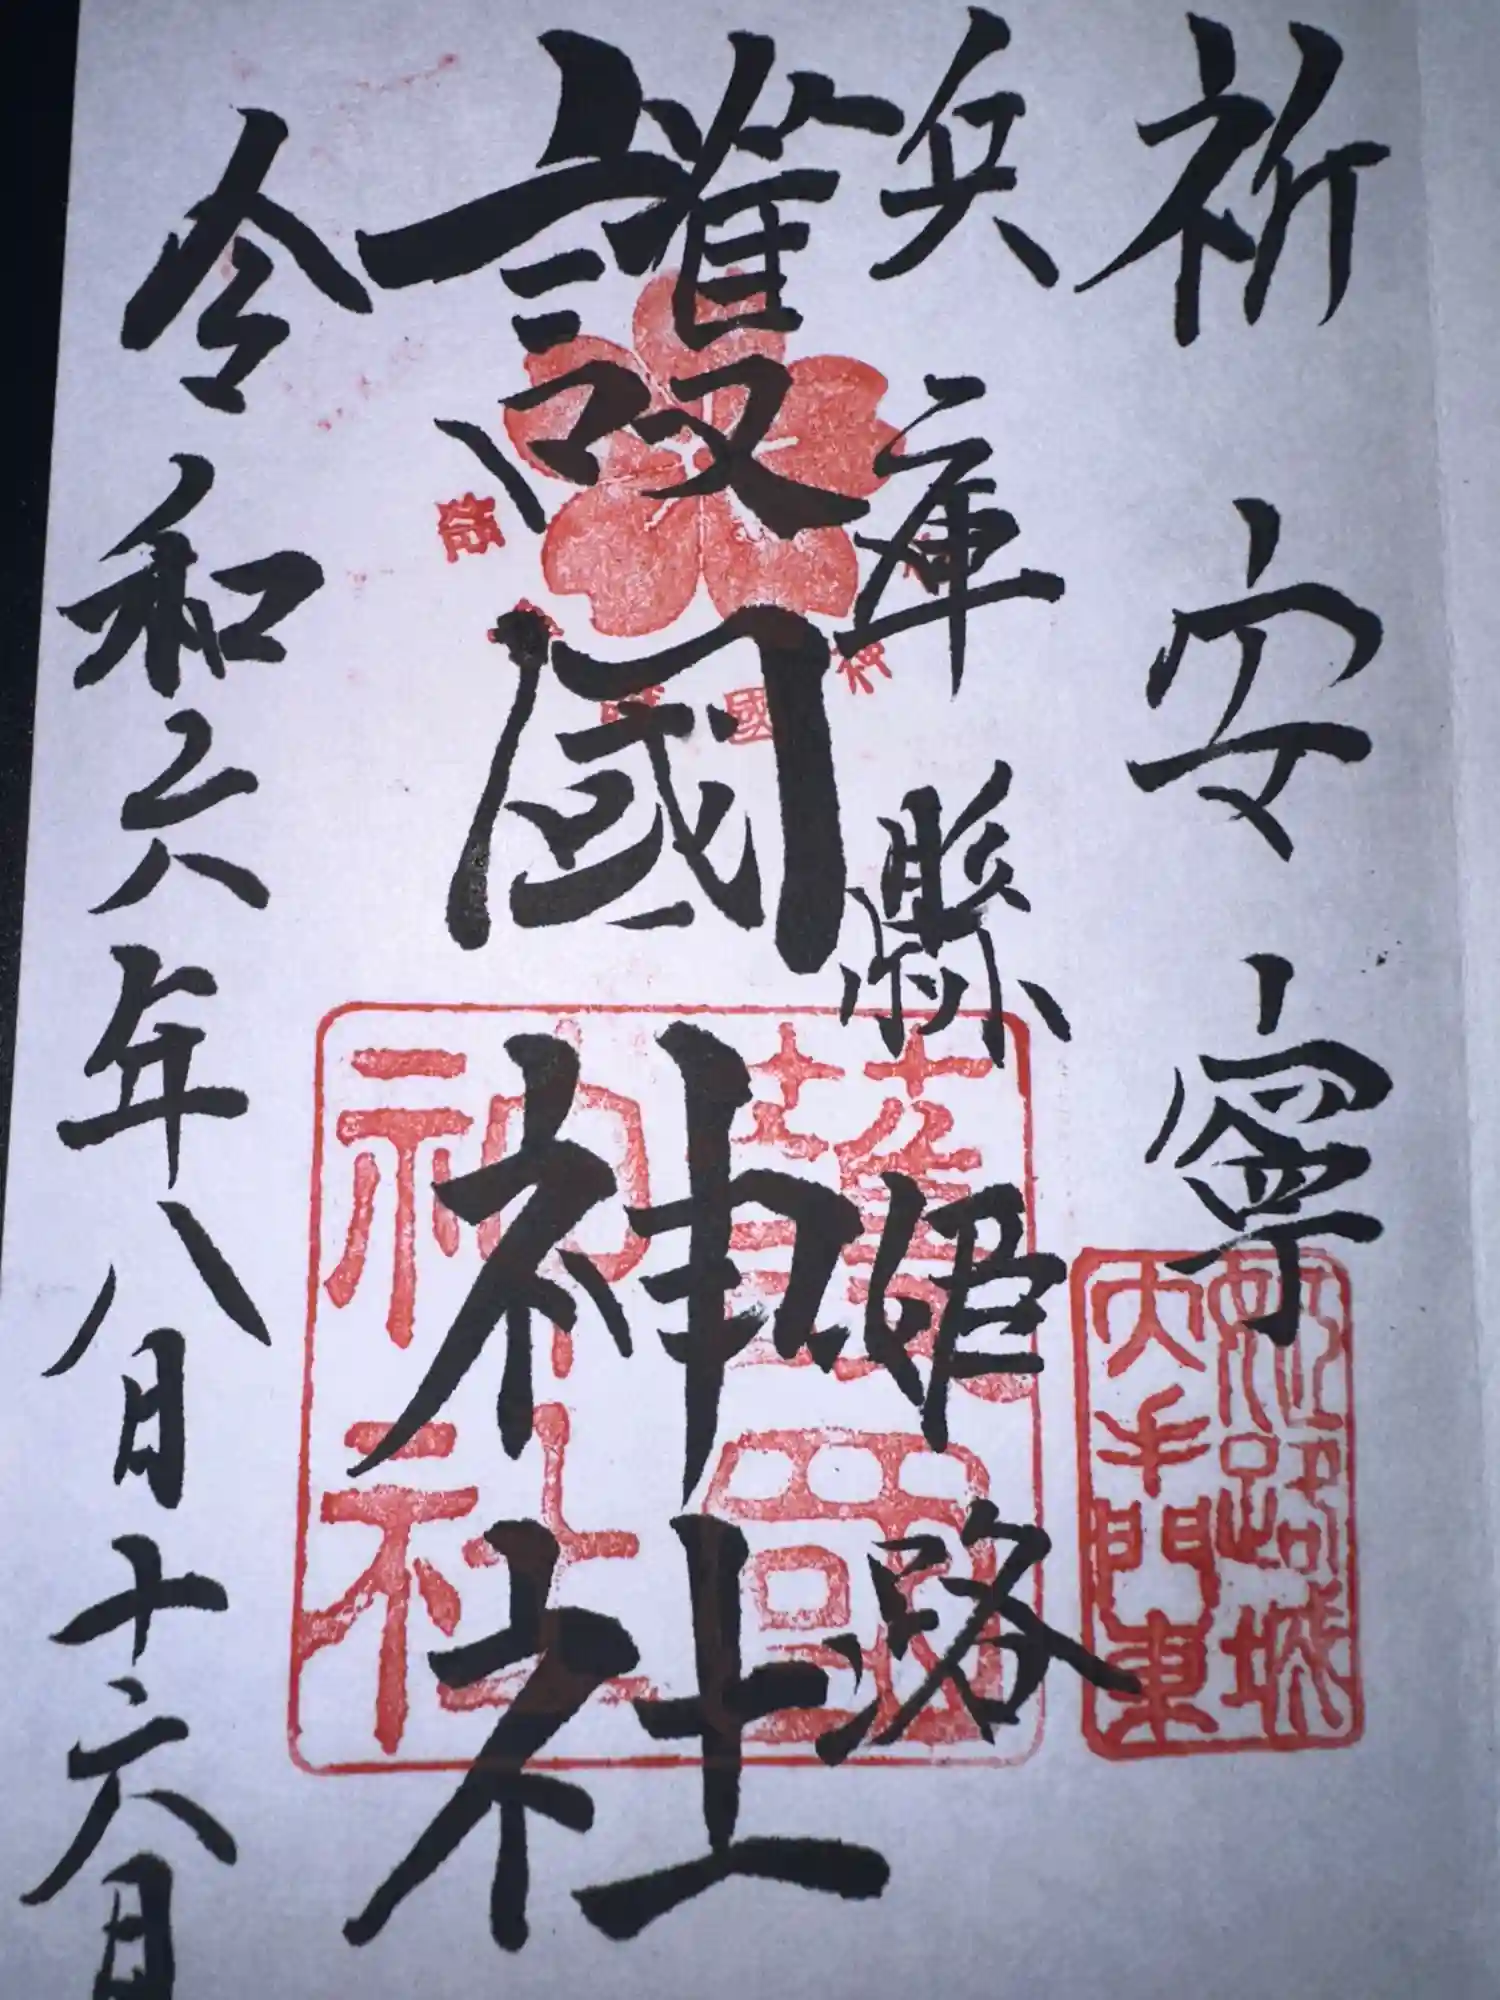 祈安寧
兵庫縣姫路
護國神社
令和六年八月十六日
姫路城
大手門東
護國
神社
國
神